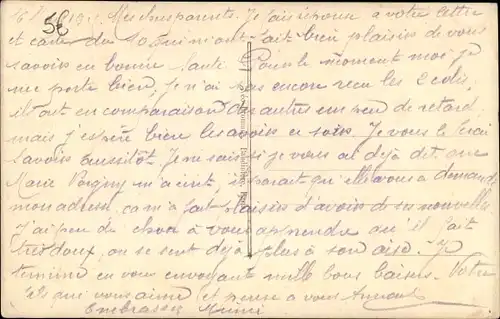 Mes chers parents. Je fais réponse à votre lettre
et carte du 10 qui m'ont fait bien plaisirs de vous
savoirs en bonne santé. Pour le moment moi je
me porte bien, je n'ai pas encore recu les 2 colis,
il ont en comparaison des autres un peu de retard
mais j'espère bien les avoirs ce soir. Je vous le ferai
savoirs aussitôt, Je ne sais si je vous ai déjà dit que
Marie m'a écrit, il parait qu'elle vous a demandé
mon adresse, ca m'a fait plaisirs d'avoirs de ses nouvelles
J'ai peu de chose à vous apprendre qu'il fait
très doux, on se sent déjà plus à son aise. Je
termine en vous envoyant mille bons baisers. Votre
fils qui vous aime et pense a vous
Embrassez Mémé
56